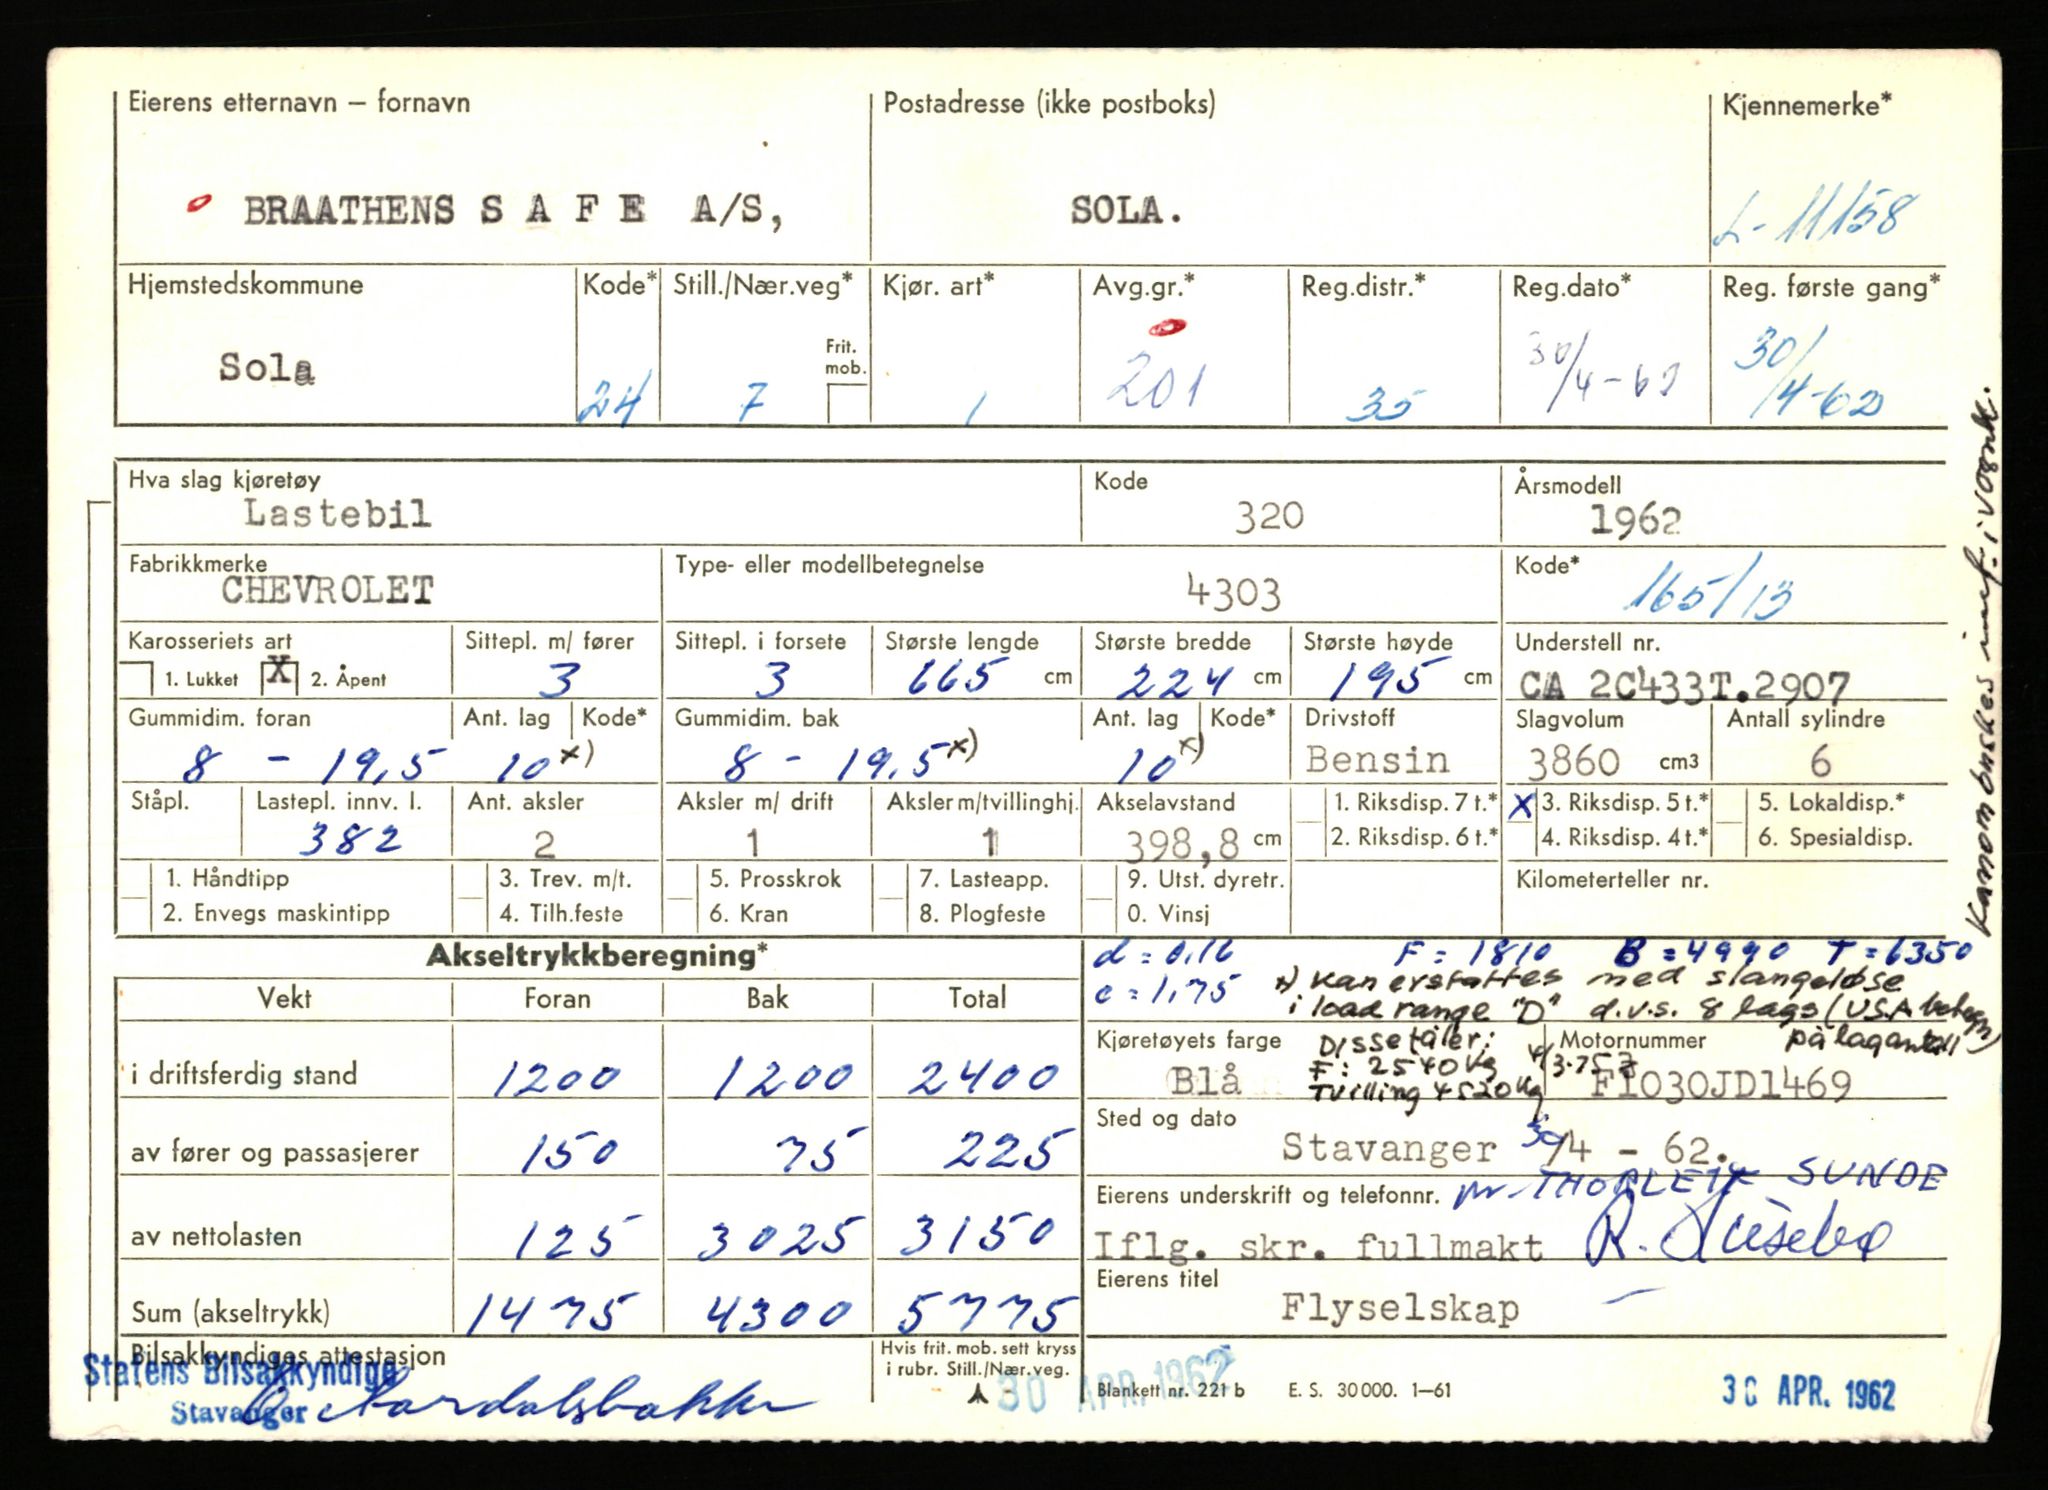 Eierens etternavn – fornavn
Postadresse (ikke postboks)
Kjennemerke*
BRAATHENS S A F E A/S,
SOLA.
L-11158
Hjemstedskommune
Kode*
Still./Nær.veg*
Kjør. art*
Avg.gr.*
Reg.distr.*
Reg.dato*
Reg. første gang*
Sola
24
7
Frit. mob.
1
201
35
30/4-62
30/4-62
Hva slag kjøretøy
Kode
Årsmodell
Lastebil
320
1962
Fabrikkmerke
Type- eller modellbetegnelse
Kode*
CHEVROLET
4303
165/13
Karosseriets art
Sittepl. m/ fører
Sittepl. i forsete
Største lengde
Største bredde
Største høyde
Understell nr.
1. Lukket X 2. Åpent
3
3
665 cm
224 cm
195 cm
CA 2C433T.2907
Gummidim. foran
Ant. lag
Kode*
Gummidim. bak
Ant. lag
Kode*
Drivstoff
Slagvolum
Antall sylindre
8 - 19,5
10 x)
8 - 19,5 x)
10 x)
Bensin
3860 cm3
6
Ståpl.
Lastepl. innv. l.
Ant. aksler
Aksler m/ drift
Aksler m/tvillinghj.
Akselavstand
1. Riksdisp. 7 t.*
X 3. Riksdisp. 5 t.*
5. Lokaldisp.*
382
2
1
1
398,8 cm
2. Riksdisp. 6 t.*
4. Riksdisp. 4 t.*
6. Spesialdisp.
1. Håndtipp
3. Trev. m/t.
5. Prosskrok
7. Lasteapp.
9. Utst. dyretr.
Kilometerteller nr.
2. Envegs maskintipp
4. Tilh.feste
6. Kran
8. Plogfeste
0. Vinsj
Akseltrykkberegning*
d = 0,16 F = 1810 B = 4990 T = 6350
c = 1,75 x) kan erstattes med slangeløse
i load range "D" d.v.s. 8 lags (U.S.A betegn.
på lagantall)
Vekt
Foran
Bak
Total
i driftsferdig stand
1200
1200
2400
av fører og passasjerer
150
75
225
av nettolasten
125
3025
3150
Sum (akseltrykk)
1475
4300
5775
Kjøretøyets farge
Disse tåler:
F: 2540 kg
Tvilling 4520 kg
Motornummer
Blå
F1030JD1469
Sted og dato
Stavanger 30/4 - 62.
Eierens underskrift og telefonnr.
pr. THORLEIF SUNDE
Iflg. skr. fullmakt
Eierens titel
Flyselskap
Bilsakkyndiges attestasjon
Statens Bilsakkyndige
Stavanger
Hvis frit. mob. sett kryss
i rubr. Still./Nær.veg.
30 APR. 1962
Blankett nr. 221 b E. S. 30 000. 1–61
30 APR. 1962